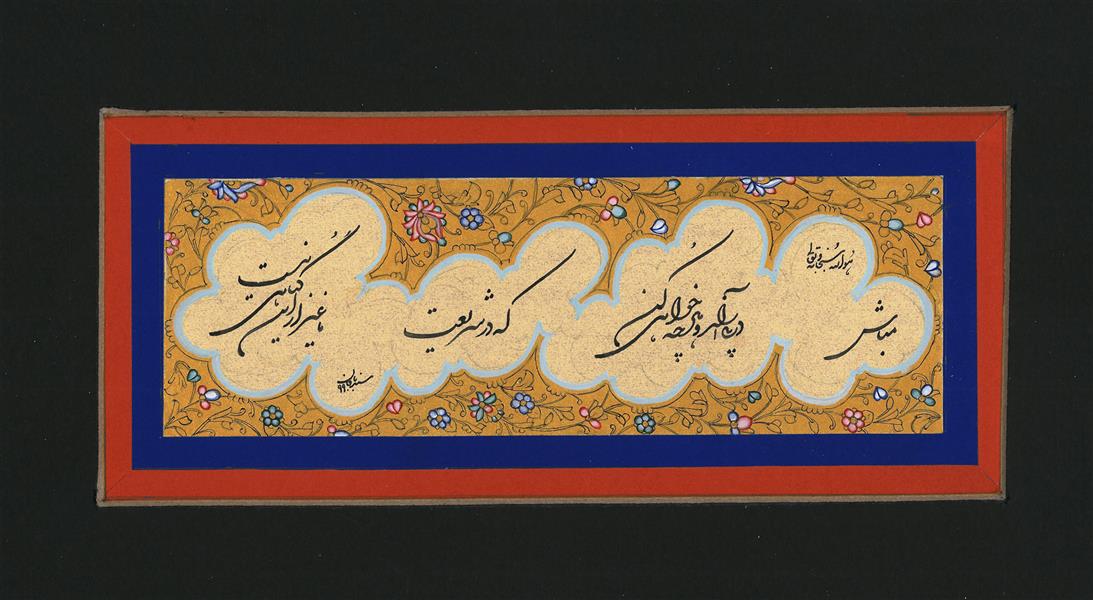 هو الله سبحانه و تعالی
مباش در پی آزار و هر چه خواهی کن
که در شریعت ما غیر از این گناهی نیست
۹۹